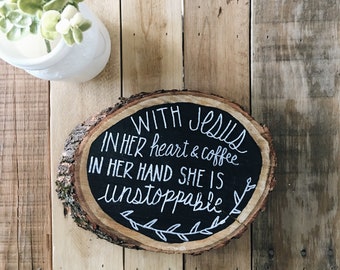 WITH Jesus
IN HER heart & coffee
IN HER HAND SHE IS
unstoppable